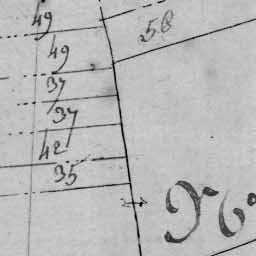 49
58
49
37
37
42
35
No